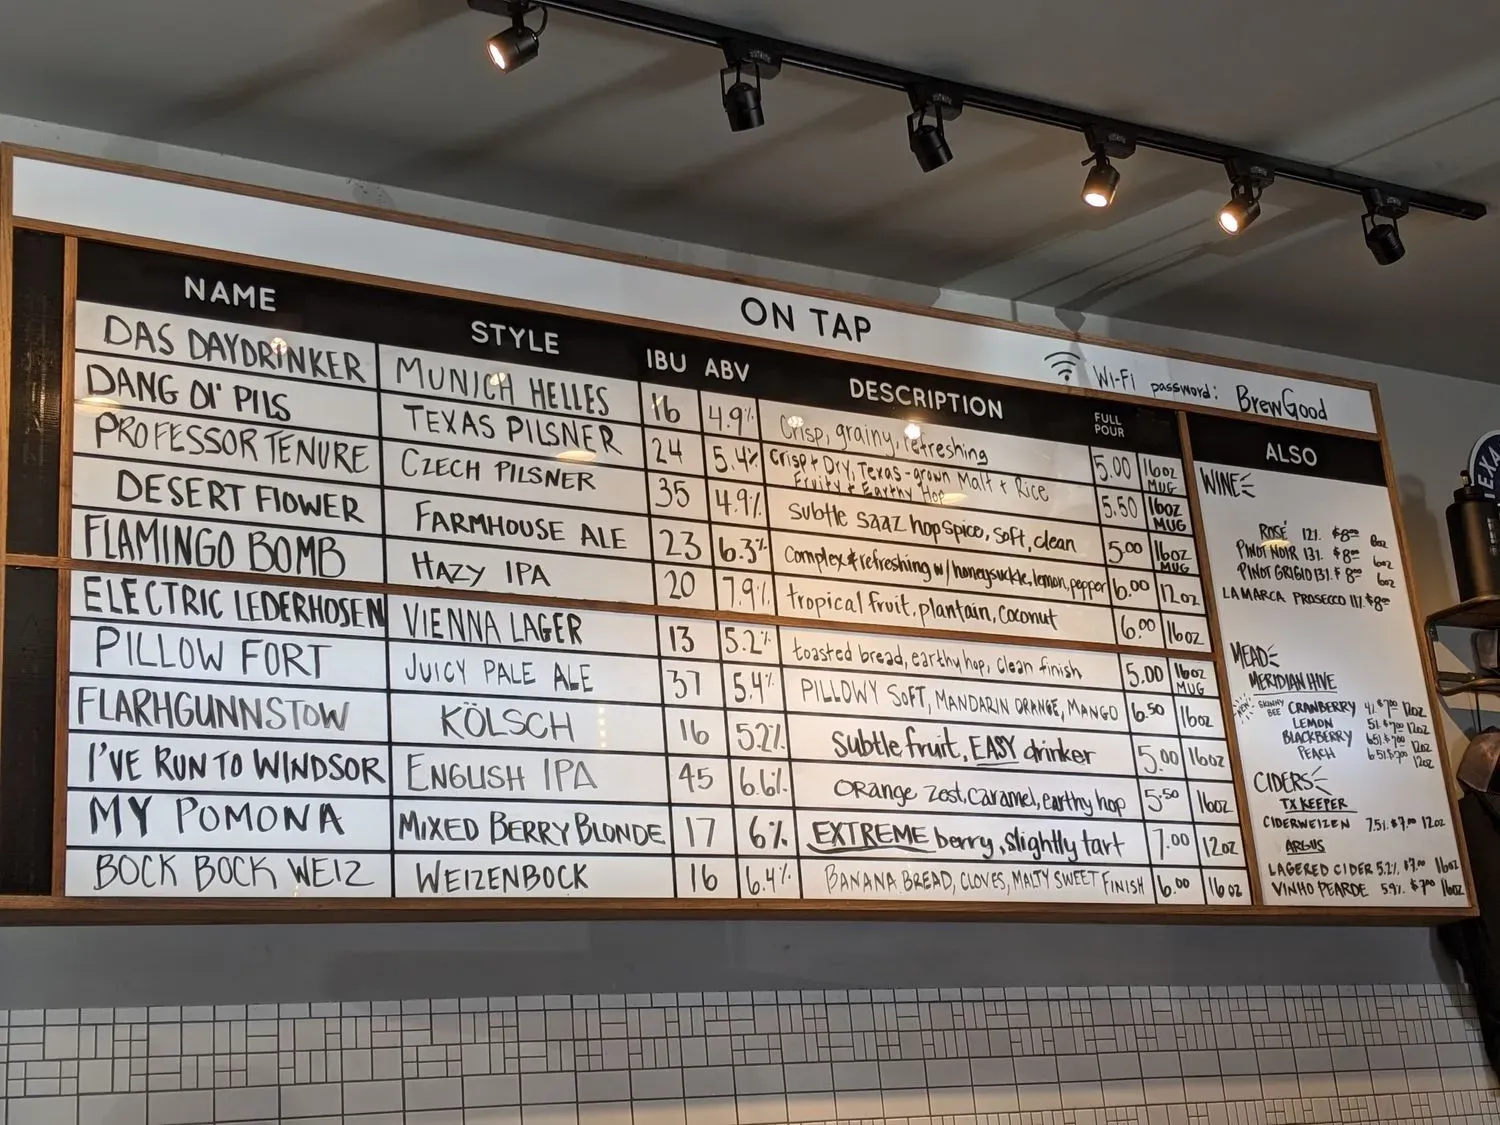 ON TAP
Wi-Fi password: BrewGood
NAME STYLE IBU ABV DESCRIPTION FULL POUR
DAS DAYDRINKER MUNICH HELLES 16 4.9% Crisp, grainy, refreshing 5.00 16oz MUG
DANG Ol' PILS TEXAS PILSNER 24 5.4% Crisp + Dry, Texas-grown Malt + Rice Fruity + Earthy Hop 5.50 16oz MUG
PROFESSOR TENURE CZECH PILSNER 35 4.9% subtle saaz hop spice, soft, clean 5.00 16oz MUG
DESERT FLOWER FARMHOUSE ALE 23 6.3% complex & refreshing w/ honeysuckle, lemon, pepper 6.00 12oz
FLAMINGO BOMB HAZY IPA 20 7.9% tropical fruit, plantain, coconut 6.00 16oz
ELECTRIC LEDERHOSEN VIENNA LAGER 13 5.2% toasted bread, earthy hop, clean finish 5.00 16oz MUG
PILLOW FORT JUICY PALE ALE 37 5.4% PILLOWY SOFT, MANDARIN ORANGE, MANGO 6.50 16oz
FLARHGUNNSTOW KÖLSCH 16 5.2% Subtle fruit, EASY drinker 5.00 16oz
I'VE RUN TO WINDSOR ENGLISH IPA 45 6.6% orange zest, caramel, earthy hop 5.50 16oz
MY POMONA MIXED BERRY BLONDE 17 6% EXTREME berry, slightly tart 7.00 12oz
BOCK BOCK WEIZ WEIZENBOCK 16 6.4% BANANA BREAD, CLOVES, MALTY SWEET FINISH 6.00 16oz
ALSO
WINE
ROSÉ 12% $8.00 6oz
PINOT NOIR 13% $8.00 6oz
PINOT GRIGIO 13% $8.00 6oz
LA MARCA PROSECCO 11% $8.00
MEAD
MERIDIAN HIVE
NEW! SKINNY BEE CRANBERRY 4% $7.00 12oz
LEMON 5% $7.00 12oz
BLACKBERRY 6.5% $7.00 12oz
PEACH 6.5% $7.00 12oz
CIDERS
TX KEEPER
CIDERWEIZEN 7.5% $7.00 12oz
ARGUS
LAGERED CIDER 5.2% $7.00 16oz
VINHO PEARDE 5.9% $7.00 16oz